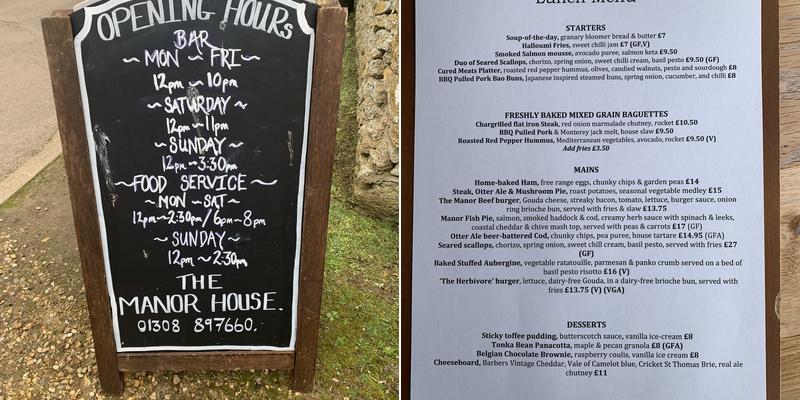 OPENING HOURS
BAR
~ MON ~ FRI ~
12pm ~ 10pm
~ SATURDAY ~
12pm ~ 11pm
~ SUNDAY ~
12pm ~ 3:30pm
~ FOOD SERVICE ~
~ MON ~ SAT ~
12pm ~ 2:30pm / 6pm ~ 8pm
~ SUNDAY ~
12pm ~ 2:30pm
THE
MANOR HOUSE.
01308 897660.
Lunch Menu
STARTERS
Soup-of-the-day, granary bloomer bread & butter £7
Halloumi Fries, sweet chilli jam £7 (GF,V)
Smoked Salmon mousse, avocado puree, salmon keta £9.50
Duo of Seared Scallops, chorizo, spring onion, sweet chilli cream, basil pesto £9.50 (GF)
Cured Meats Platter, roasted red pepper hummus, olives, candied walnuts, pesto and sourdough £8
BBQ Pulled Pork Bao Buns, Japanese inspired steamed buns, spring onion, cucumber, and chilli £8
FRESHLY BAKED MIXED GRAIN BAGUETTES
Chargrilled flat iron Steak, red onion marmalade chutney, rocket £10.50
BBQ Pulled Pork & Monterey jack melt, house slaw £9.50
Roasted Red Pepper Hummus, Mediterranean vegetables, avocado, rocket £9.50 (V)
Add fries £3.50
MAINS
Home-baked Ham, free range eggs, chunky chips & garden peas £14
Steak, Otter Ale & Mushroom Pie, roast potatoes, seasonal vegetable medley £15
The Manor Beef burger, Gouda cheese, streaky bacon, tomato, lettuce, burger sauce, onion
ring brioche bun, served with fries & slaw £13.75
Manor Fish Pie, salmon, smoked haddock & cod, creamy herb sauce with spinach & leeks,
coastal cheddar & chive mash top, served with peas & carrots £17 (GF)
Otter Ale beer-battered Cod, chunky chips, pea puree, house tartare £14.95 (GFA)
Seared scallops, chorizo, spring onion, sweet chill cream, basil pesto, served with fries £27
(GF)
Baked Stuffed Aubergine, vegetable ratatouille, parmesan & panko crumb served on a bed of
basil pesto risotto £16 (V)
'The Herbivore' burger, lettuce, dairy-free Gouda, in a dairy-free brioche bun, served with
fries £13.75 (V) (VGA)
DESSERTS
Sticky toffee pudding, butterscotch sauce, vanilla ice-cream £8
Tonka Bean Panacotta, maple & pecan granola £8 (GFA)
Belgian Chocolate Brownie, raspberry coulis, vanilla ice cream £8
Cheeseboard, Barbers Vintage Cheddar, Vale of Camelot blue, Cricket St Thomas Brie, real ale
chutney £11